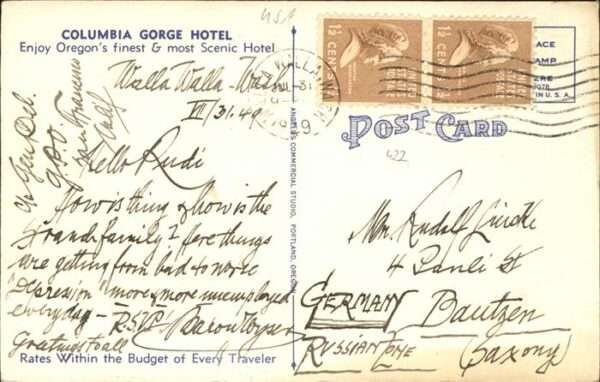 COLUMBIA GORGE HOTEL
Enjoy Oregon's finest & most Scenic Hotel
USA
Walla Walla-Wash
III/31.49
c/o Gen Del.
G.P.O.
San Francisco
Calif
Hello Rudi
How is thing & how is the
grand family? here things
are getting from bad to worse
"Depression" more & more unemployed
everyday - R.S.V.P.
Greetings to all
Rates Within the Budget of Every Traveler
COMMERCIAL STUDIO, PORTLAND, OREGON
WALLA WALLA
1949
1½ CENTS
1½ CENTS
ACE
AMP
ERE
IN U. S. A.
POST CARD
422
Mr. Rudolf
4 Pauli St
GERMANY Bautzen
RUSSIAN ZONE (Saxony)